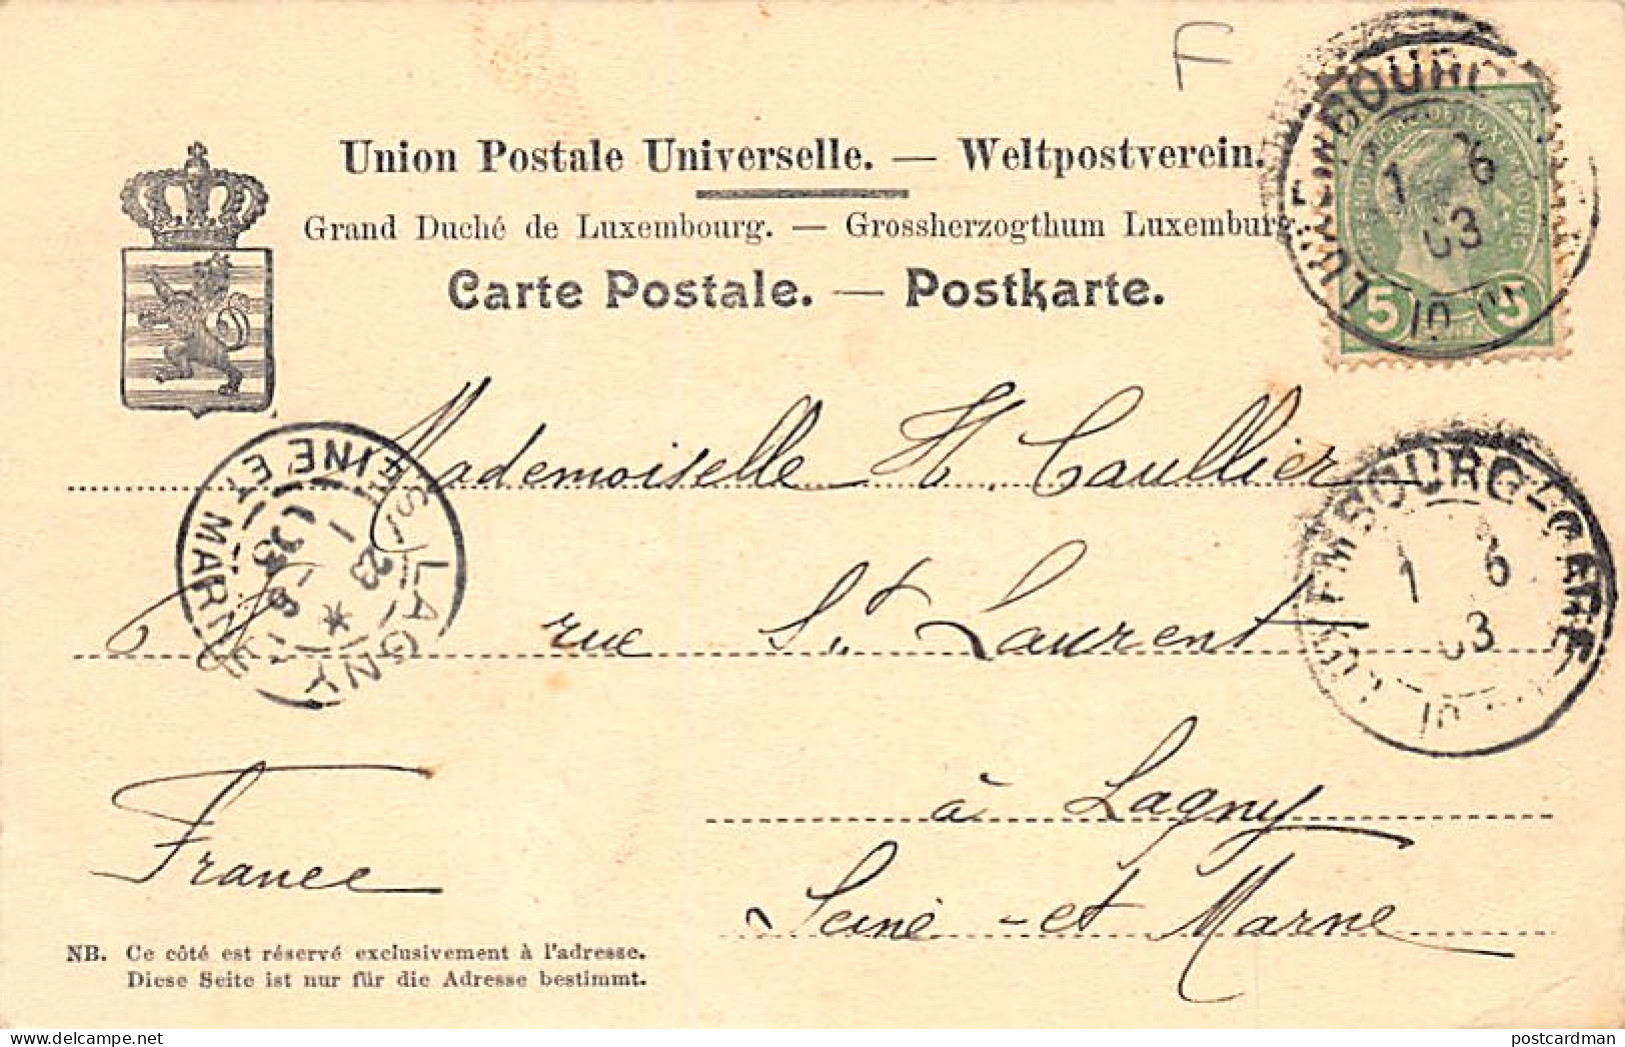 F
Union Postale Universelle. — Weltpostverein.
Grand Duché de Luxembourg. — Grossherzogthum Luxemburg.
Carte Postale. — Postkarte.
LUXEMBOURG
1 6
03
GRAND DUCHE DE LUXEMBOURG
5 5
Mademoiselle H. Caullier
rue St. Laurent
à Lagny
Seine-et Marne
France
LAGNY
SEINE ET MARNE
LUXEMBOURG-GARE
1 6
03
NB. Ce côté est réservé exclusivement à l'adresse.
Diese Seite ist nur für die Adresse bestimmt.
postcardman